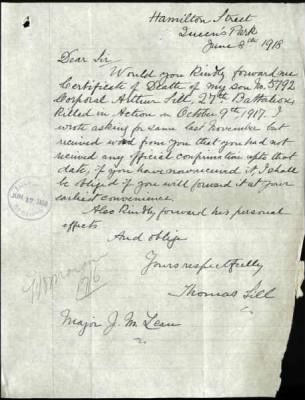 Hamilton Street
Queens Park
June 8th 1918
Dear Sir,
Would you Kindly forward me
Certificate of Death of my son No. 5792
Corporal Arthur Sill, 27th Battalion
Killed in Action on October 9th 1917. I
wrote asking for same last November but
received word from you that you had not
received any official confirmation upto that
date, if you have now received it I shall
be obliged if you will forward it at your
earliest convenience.
Also Kindly forward his personal
effects
And oblige
Yours respectfully
Thomas Sill
Major J. M. Lean